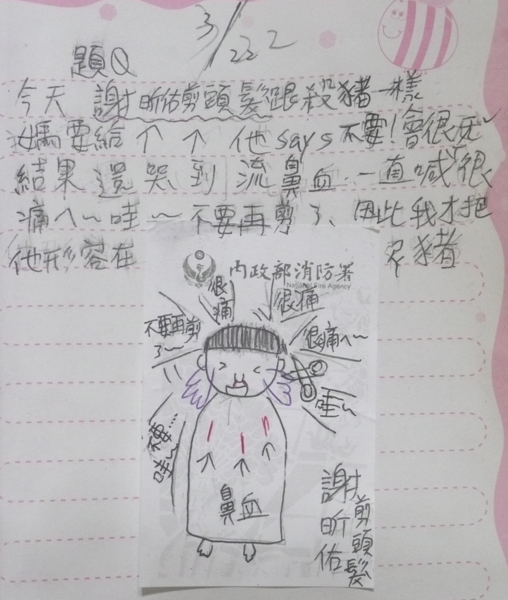 3/22 2
題Q
今天 謝昕佑剪頭髮跟殺豬一樣
媽要給↑↑他says不要!會很死
結果還哭到流鼻血.一直喊很
痛ㄟ~哇~不要再剪了、因此我才把
他形容在 殺豬
內政部消防署
National Fire Agency
很痛
很痛
不要再剪了~
很痛ㄟ~
哇~
不要...
哇~
鼻血
謝昕佑
剪頭髮